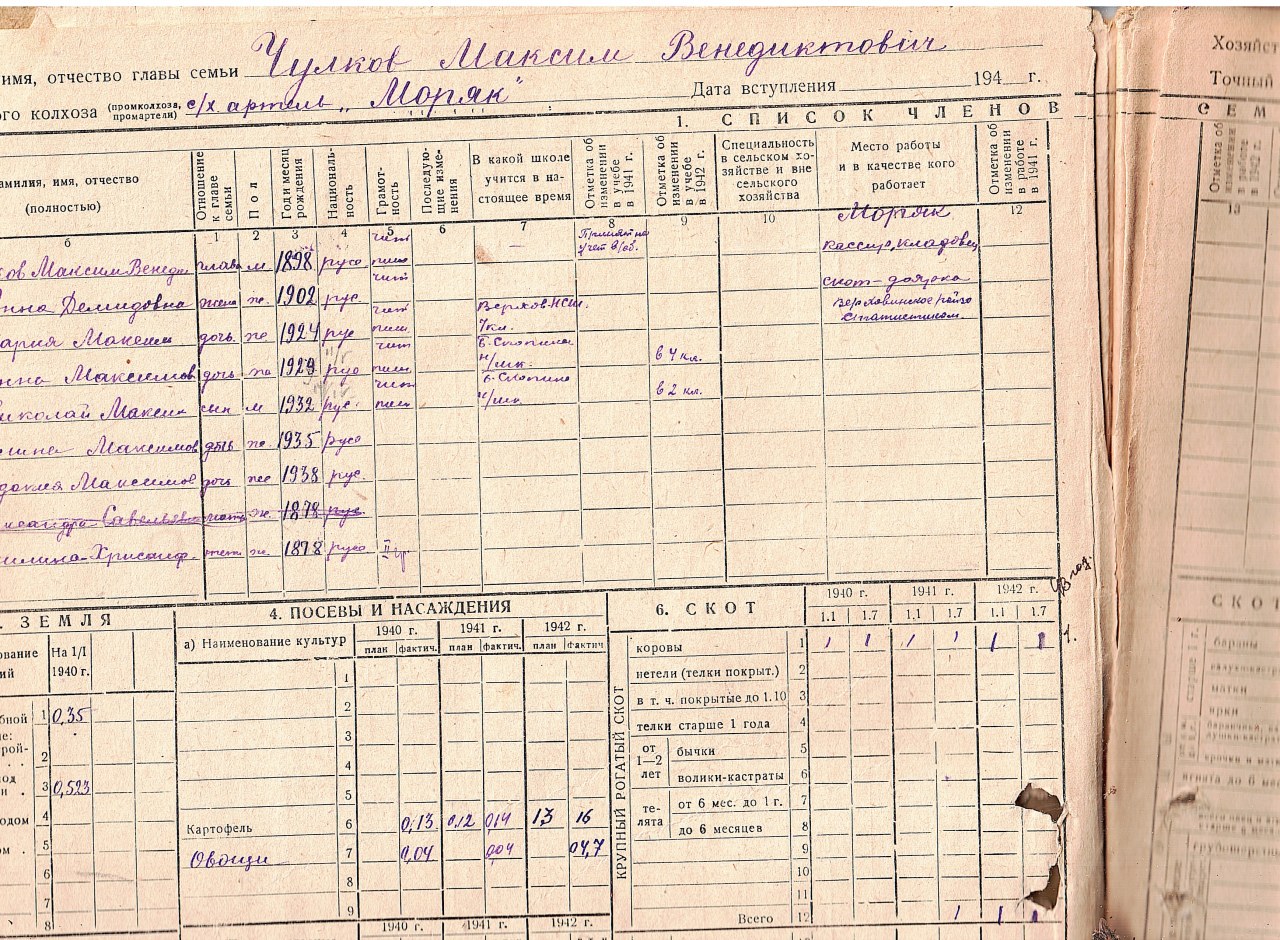 имя, отчество главы семьи Чулков Максим Венедиктович
ого колхоза (промколхоза, промартели) с/х артель „Моряк"
Дата вступления 194 г.
1. СПИСОК ЧЛЕНОВ
амилия, имя, отчество (полностью)
Отношение к главе семьи
Пол
Год и месяц рождения
Националь- ность
Грамот- ность
Последую- щие изме- нения
В какой школе учится в на- стоящее время
Отметка об изменении в учебе в 1941 г.
Отметка об изменении в учебе в 1942 г.
Специальность в сельском хо- зяйстве и вне сельского хозяйства
Место работы и в качестве кого работает
Отметка об изменении в работе в 1941 г.
б 1 2 3 4 5 6 7 8 9 10 12
Моряк
ков Максим Венеди глава м 1898 русс кассир, кладовщ
нна Демидовна жена ж. 1902 рус. скот-доярка
ария Максим дочь. ж 1924 рус Верхов. НСШ. 7 кл.
нна Максимов дочь ж 1929 русс Б-Скопино н/шк. в 4 кл.
иколай Максим сын м 1932 рус. Б-Скопино н/шк. в 2 кл.
Максимов дочь ж. 1935 русс
докия Максимов дочь же 1938 рус.
ксандра Савельевн мать ж. 1878 рус
Хрисанф. ж. 1878 русс II гр.
ЗЕМЛЯ
На 1/I 1940 г.
1 0,35
2
3 0,523
4
5
6
7
8
4. ПОСЕВЫ И НАСАЖДЕНИЯ
а) Наименование культур
1940 г. 1941 г. 1942 г.
план фактич. план фактич. план фактич
1
2
3
4
5
Картофель 6 0,13 0,12 0,14 13 16
Овощи 7 0,04 0,04 04,7
8
9
1940 г. 1941 г. 1942 г.
6. СКОТ
1940 г. 1941 г. 1942 г.
1.1 1.7 1.1 1.7 1.1 1.7
КРУПНЫЙ РОГАТЫЙ СКОТ
коровы 1 1 1 1 1 1 1
нетели (телки покрыт.) 2
в т. ч. покрытые до 1.10 3
телки старше 1 года 4
от 1—2 лет
бычки 5
волики-кастраты 6
те- лята
от 6 мес. до 1 г. 7
до 6 месяцев 8
9
10
11
Всего 12 1 1 1
1.
Хозяйст
Точный
СЕМ
Отметка об изменении в работе в 1942 г.
13
СКОТ
бараны
матки
ярки